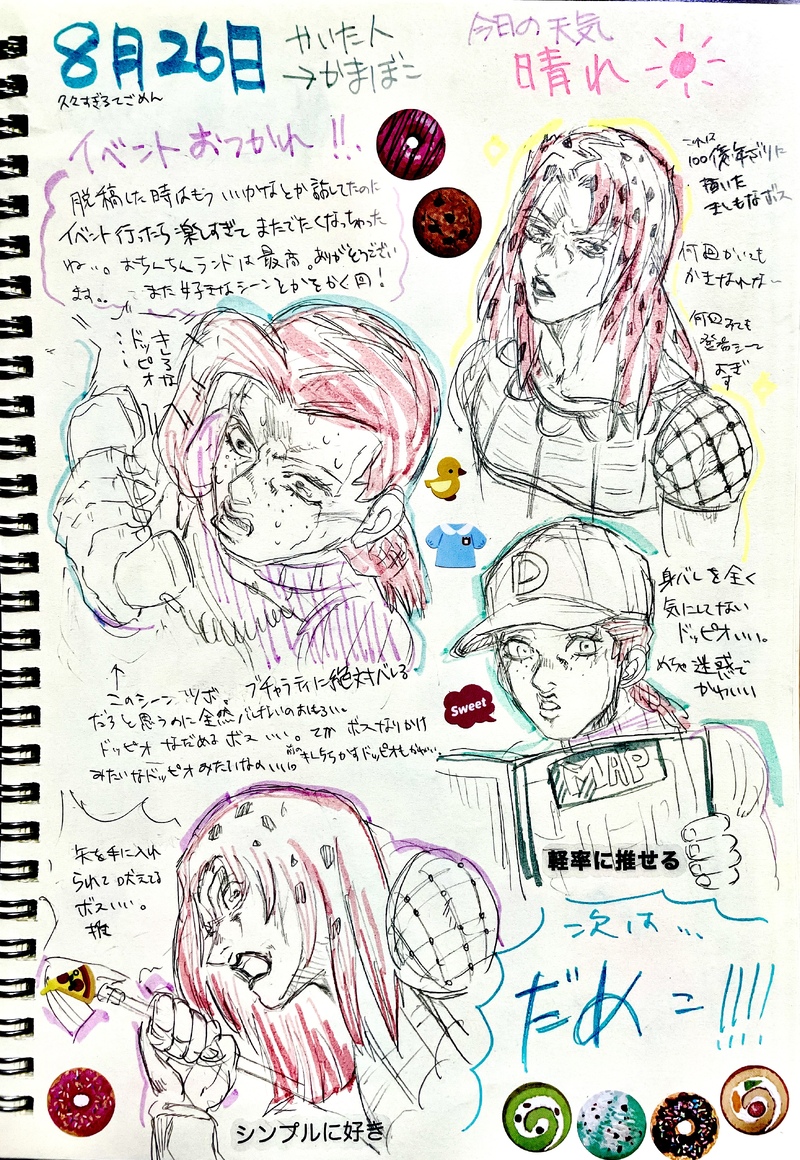 8月26日
かいた人
→かまぼこ
今日の天気
晴れ
久々すぎるてごめん
イベントおつかれ!!.
脱稿した時はもういいかなとか話してたのに
イベント行ったら楽しすぎてまたでたくなっちゃった
ね…。おちんちんランドは最高。ありがとうござい
ます.. また好きなシーンとかをかく回!
これは
100億年ぶりに
描いた
ましもなボス
何回かいても
かきなれな〜
何回みても
登場シーン
すぎ
す
きしるな
ドッピオ
↑
このシーンツボ。ブチャラティに絶対バレる
だろと思うのに全然バレないのおもろい。
ドッピオなだめるボスいい。てかボスなりかけ
みたいなドッピオみたいなのいい。
身バレを全く
気にしてない
ドッピオいい。
めちゃ迷惑で
かわいい
D
Sweet
MAP
軽率に推せる
矢を手に入れ
られて吠えてる
ボスいい。
推
次は…
だめこ!!!!
シンプルに好き